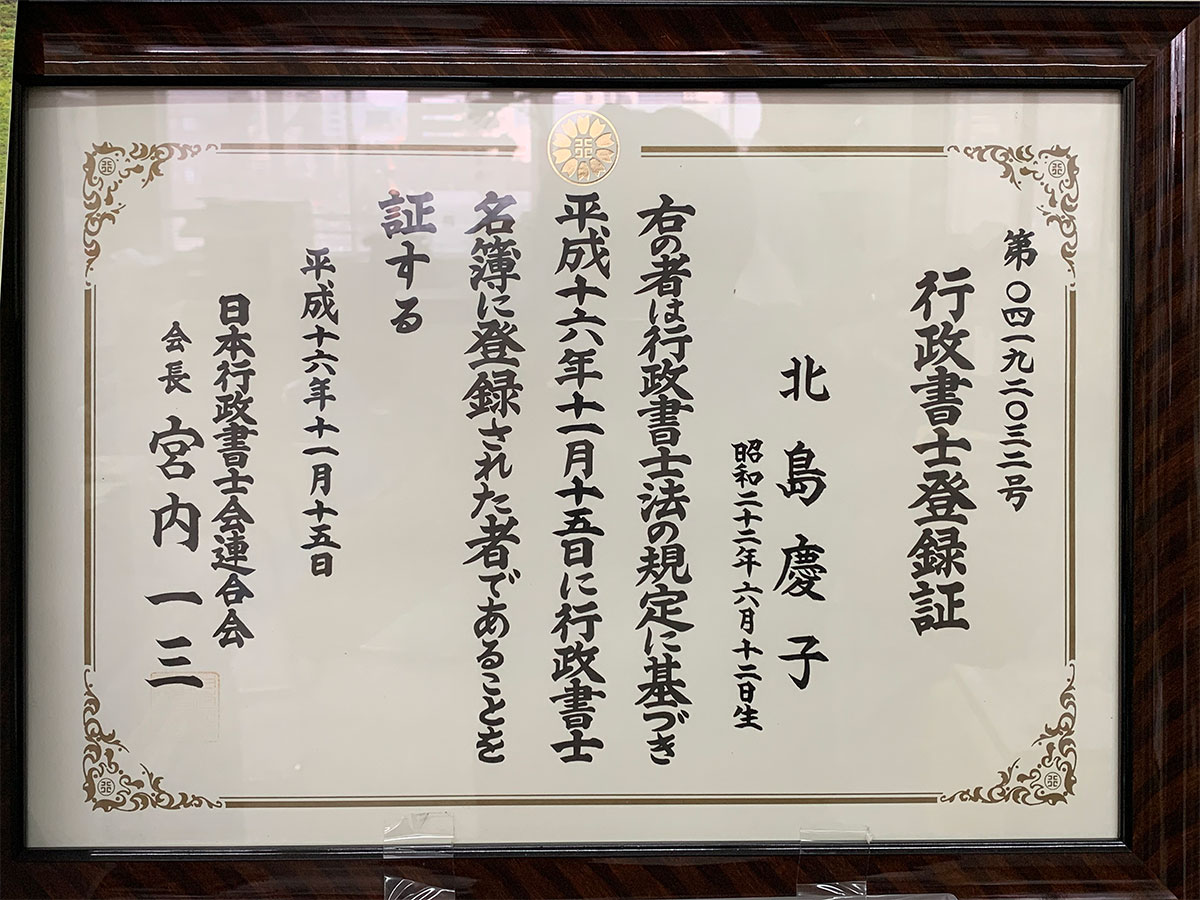 第〇四一九二〇三二号
行政書士登録証
北島慶子
昭和二十二年六月十二日生
右の者は行政書士法の規定に基づき
平成十六年十一月十五日に行政書士
名簿に登録された者であることを
証する
平成十六年十一月十五日
日本行政書士会連合会
会長 宮内一三